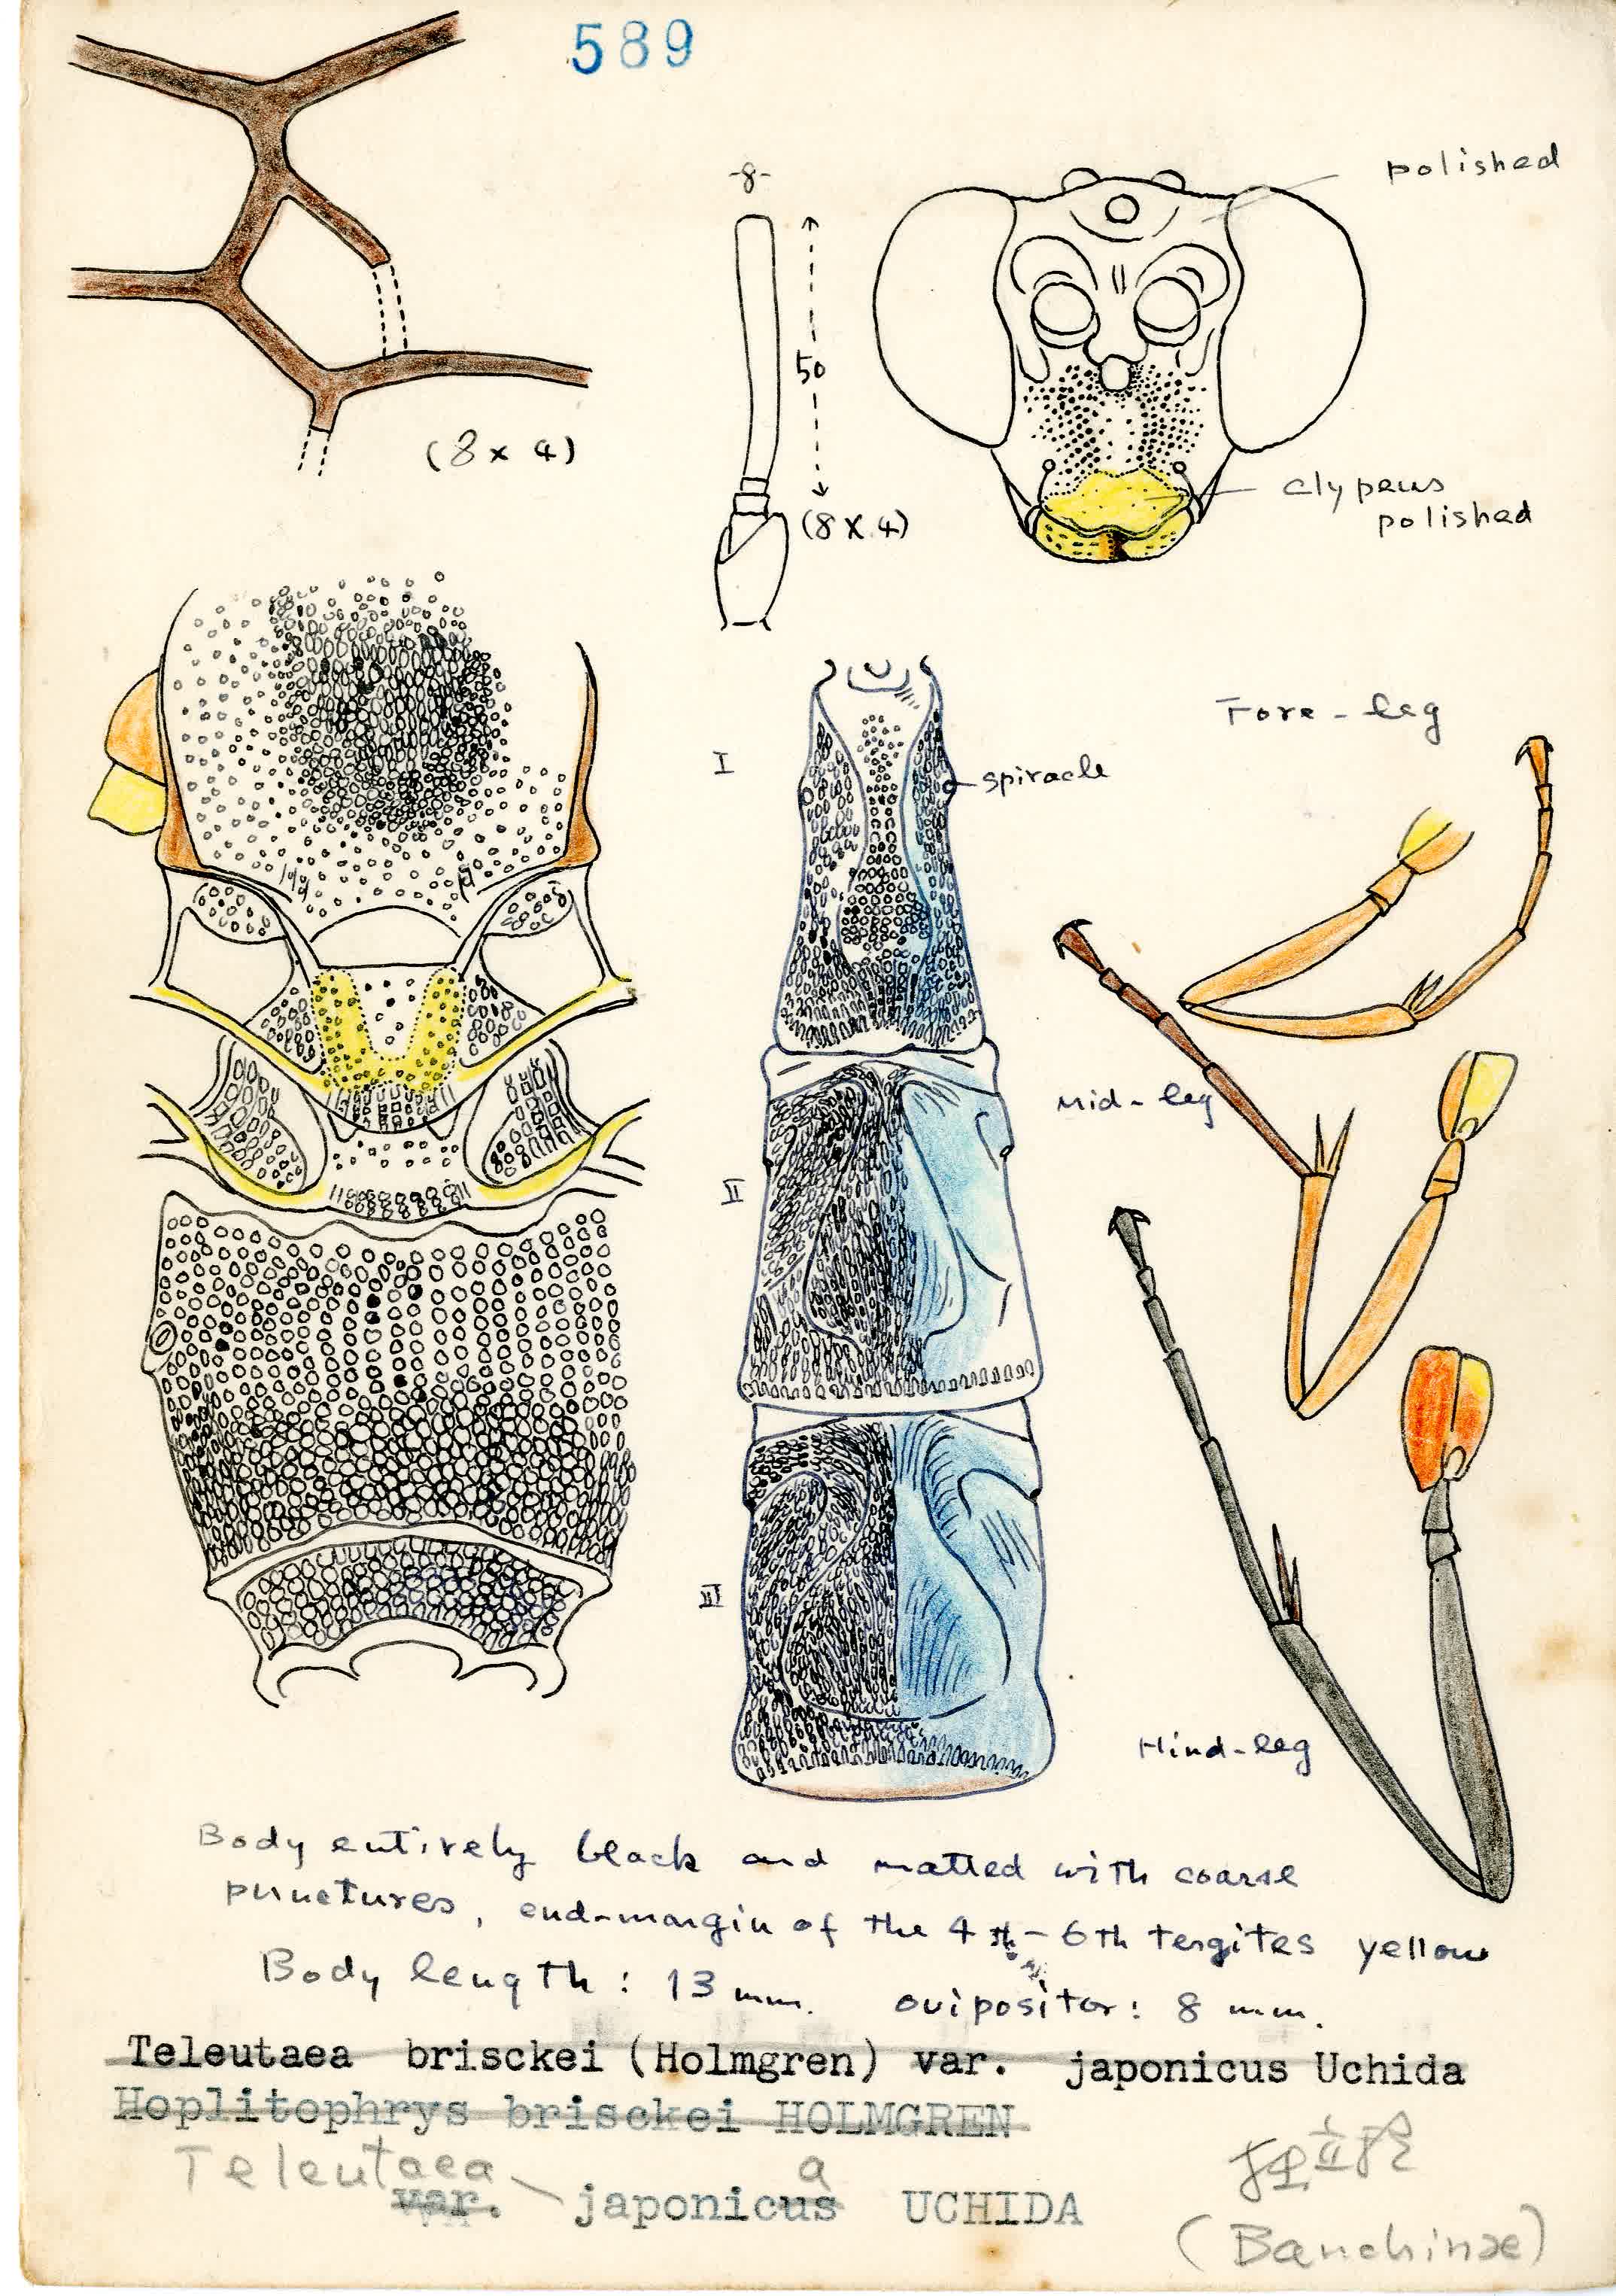 589
-8-
50
(8 x 4)
(8 x 4)
polished
clypeus
polished
I
spiracle
Fore-leg
Mid-leg
II
III
Hind-leg
Body entirely black and matted with coarse
punctures, end-margin of the 4th-6th tergites yellow
Body length: 13 mm. ovipositor: 8 mm.
Teleutaea brisckei (Holmgren) var. japonicus Uchida
Hoplitophrys brisckei HOLMGREN
Teleutaea a
var. japonicus UCHIDA
(Banchinae)